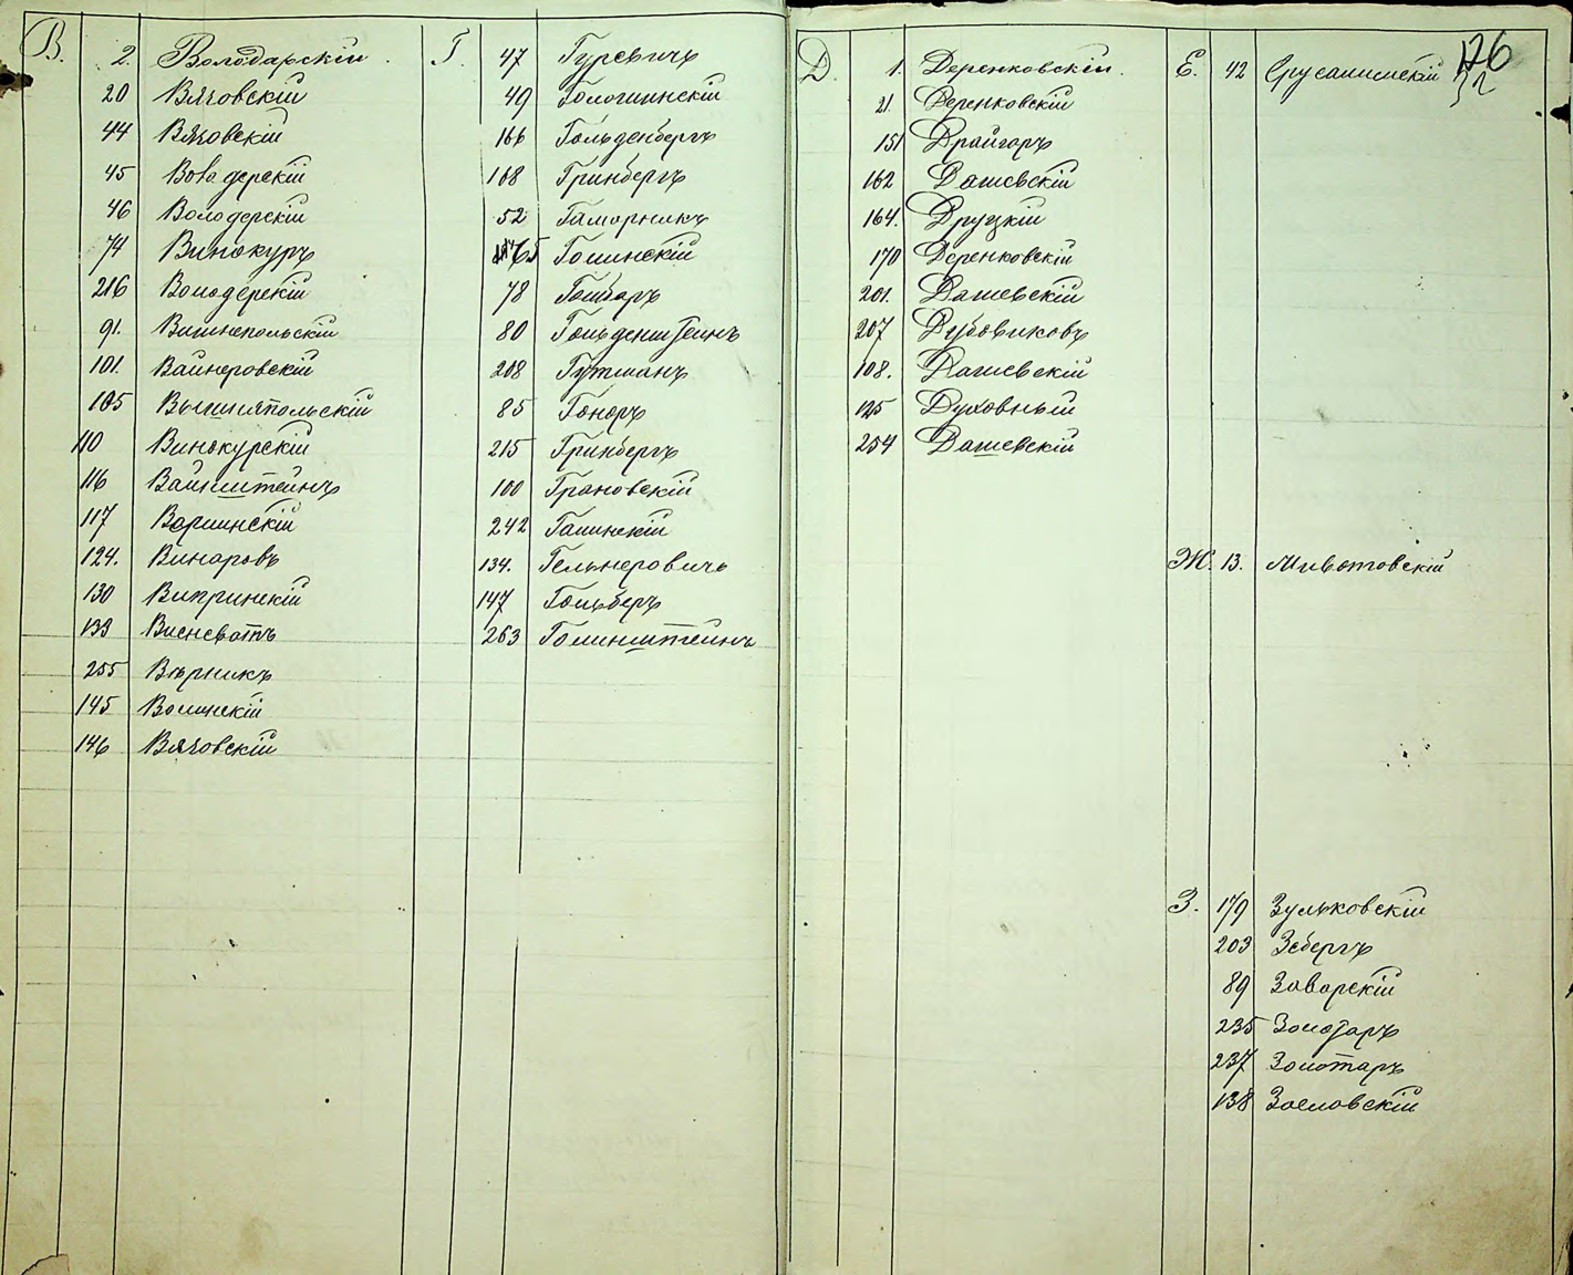 В. 2. Володарскій
20 Вяховскій
44 Вяховскій
45 Вовадерскій
46 Володерскій
74 Винокуръ
216 Володерскій
91. Вишнепольскій
101. Вайнеровскій
105 Вышняпольскій
110 Винокурскій
116 Вайнштейнъ
117 Варшинскій
124. Винаровъ
130 Випринскій
133 Висневатъ
255 Вѣрникъ
145 Волинскій
146 Вяховскій
Г. 47 Гуревичъ
49 Гологлинскій
166 Гольденбергъ
168 Гринбергъ
52 Гаморникъ
65 Голинскій
78 Гольбаръ
80 Гольденштейнъ
208 Гутманъ
85 Гоноръ
215 Гринбергъ
100 Грановскій
242 Галинскій
134. Гельнеровичъ
147 Гольберъ
263 Голинштейнъ
Д. 1. Деренковскій.
21. Деренковскій
151 Драйгоръ
162 Дашевскій
164. Друцкій
170 Деренковскій
201. Дашевскій
207 Дубовиковъ
108. Дашевскій
125 Духовный
254 Дашевскій
126
32
Е. 42 Ерусалимскій
Ж. 13. Животовскій
З. 179 Зульковскій
203 Зебергъ
89 Заварскій
235 Золотаръ
237 Золотаръ
138 Заславскій